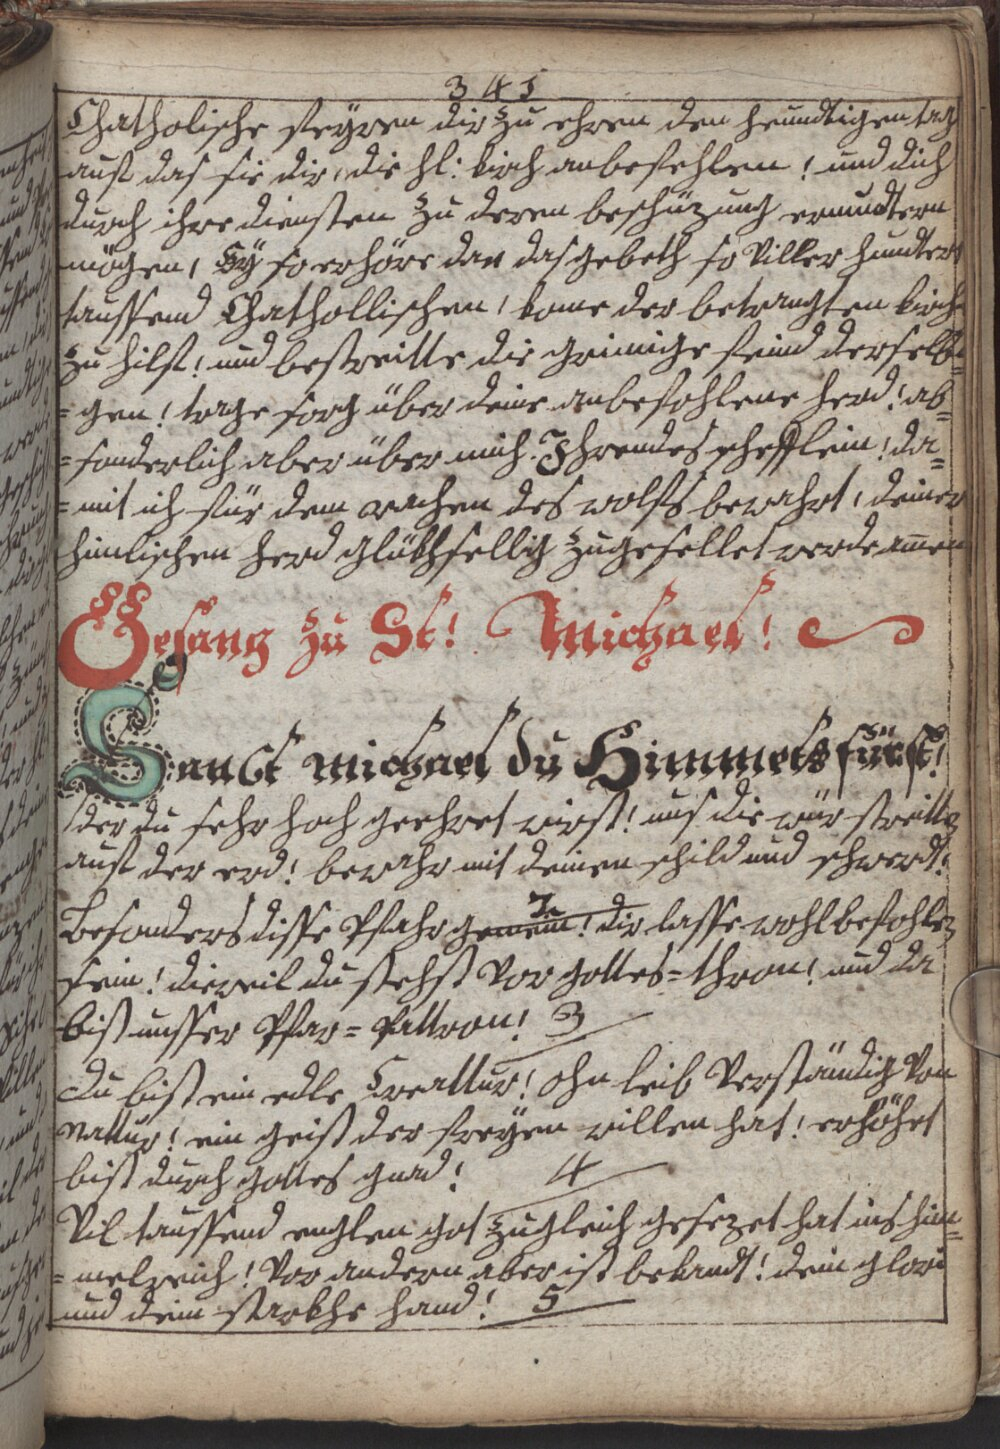 341
Chatholische feÿren dir zu ehren den heundtigen tag
auf das sie dir, die hl: kirch anbefehlen! und dich
durch ihre diensten zu deren beschüzung ermundtern
mögen, Eÿ so erhöre dan das gebeth so Viller hundert
taussend Chathollischen, kome der betrangten kirch
zu hilf! und bestreitte die grimige feind derselb=
=gen! trage sorg über deine anbefohlene herd! ab=
=sonderlich aber über mich. Ihrendes scheflein! da=
=mit ich für dem rachen des wolfs bewahrt, deiner
himlischen herd glükhsellig zugesellet werde amen
Gesang zu St! Michael!
Sanct michael du Himmels fürst!
der du sehr hoch geehret wirst! uns die wür streitten
auf der erd! bewahr mit deinen schild und schwerdt!
2
Besonders disse Pfahr gemein! dir lasse wohl befohlen
sein! dieweil du stehst Vor gottes=thron! und da
bist unsser Pfar=Pattron! 3
Du bist ein edle Creattur! ohn leib Verständig Von
nattur! ein geist der freÿen willen hat! erhöhet
bist durch gottes gnad! 4
Vil taussend englen got zugleich gesezet hat ins him=
=melreich! Vor andern aber ist bekandt! dein glori
und dein starkhe hand! 5